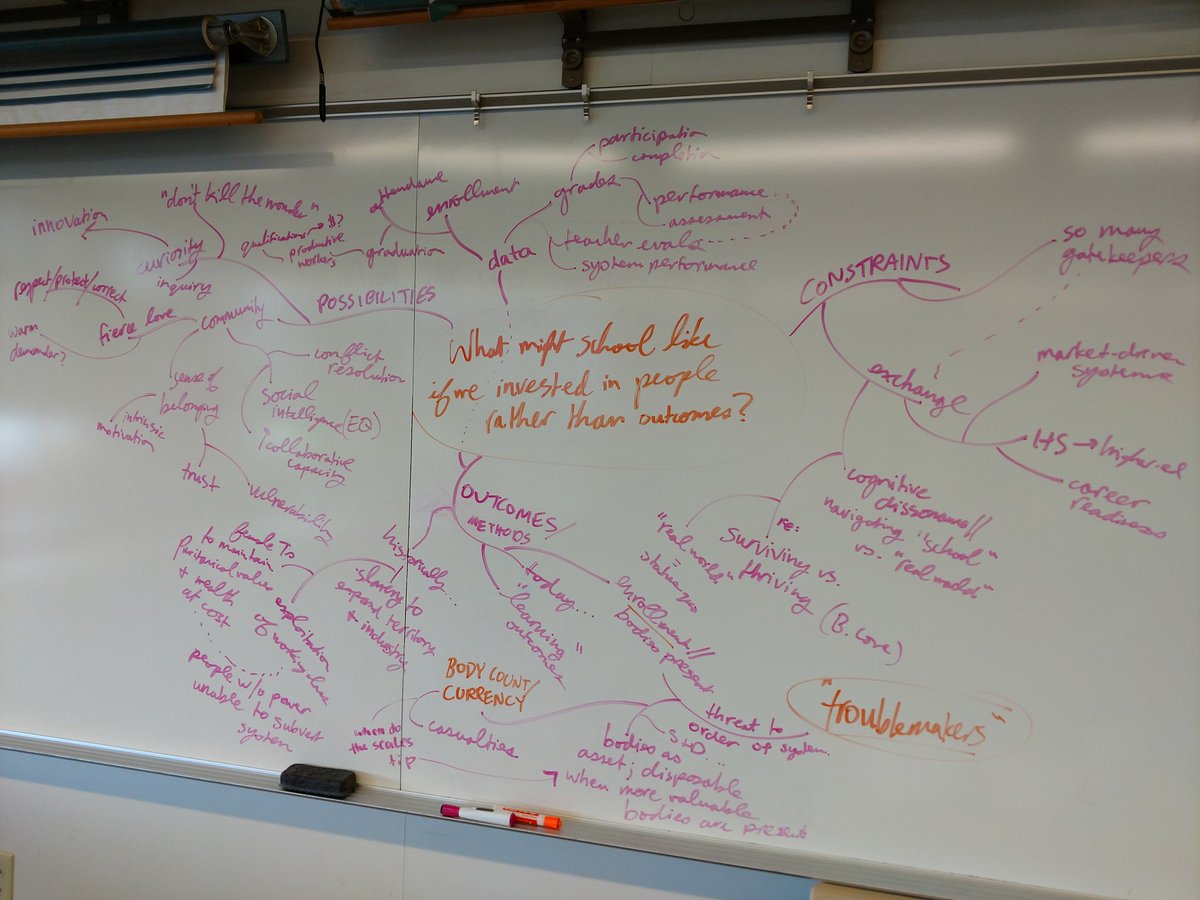 What might school like
if we invested in people
rather than outcomes?
POSSIBILITIES
curiosity
inquiry
"don't kill the wonder"
innovation
community
fierce love
respect/protect/correct
warm
demander?
sense of
belonging
intrinsic
motivation
trust
vulnerability
conflict
resolution
social
intelligence (EQ)
↑collaborative
capacity
data
enrollment
attendance
graduation
productive
workers
qualifications → $?
grades
participation
completion
performance
assessment
teacher evals
system performance
CONSTRAINTS
so many
gatekeepers
exchange
market-driven
systems
HS → higher-ed
career
readiness
cognitive
dissonance//
navigating "school"
vs. "real world"
re:
surviving vs.
thriving (B. Love)
"real world" =
status quo
OUTCOMES/
METHODS
historically...
slavery to
expand territory
& industry
exploitation
of working class
female Ts
to maintain
Puritanical values
& wealth
at cost
people w/o power
unable to subvert
system
today...
"learning
outcomes"
enrollment//
bodies present
threat to
order of system
"troublemakers"
S+D...
bodies as
asset; disposable
when more valuable
bodies are present
BODY COUNT/
CURRENCY
casualties
when do
the scales
tip